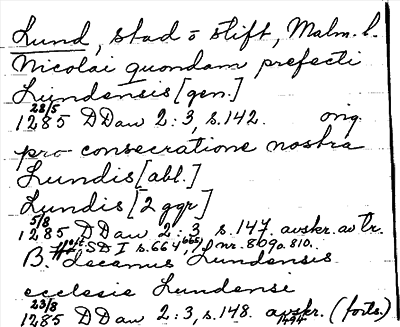 Lund, stad o stift, Malm. l.
Nicolai quondam prefecti
Lundensis [gen.]
28/5
1285 DDan 2:3, s.142. orig.
pro consecratione nostra
Lundis [abl.]
Lundis [2 ggr]
5/8
1285 DDan 2:3 s.147. avskr. av tr.
SD I s.664, 665, nr. 809 o. 810.
B. Decanus Lundensis
ecclesie Lundensi
23/8
1285 DDan 2:3, s.148. avskr. (forts.)